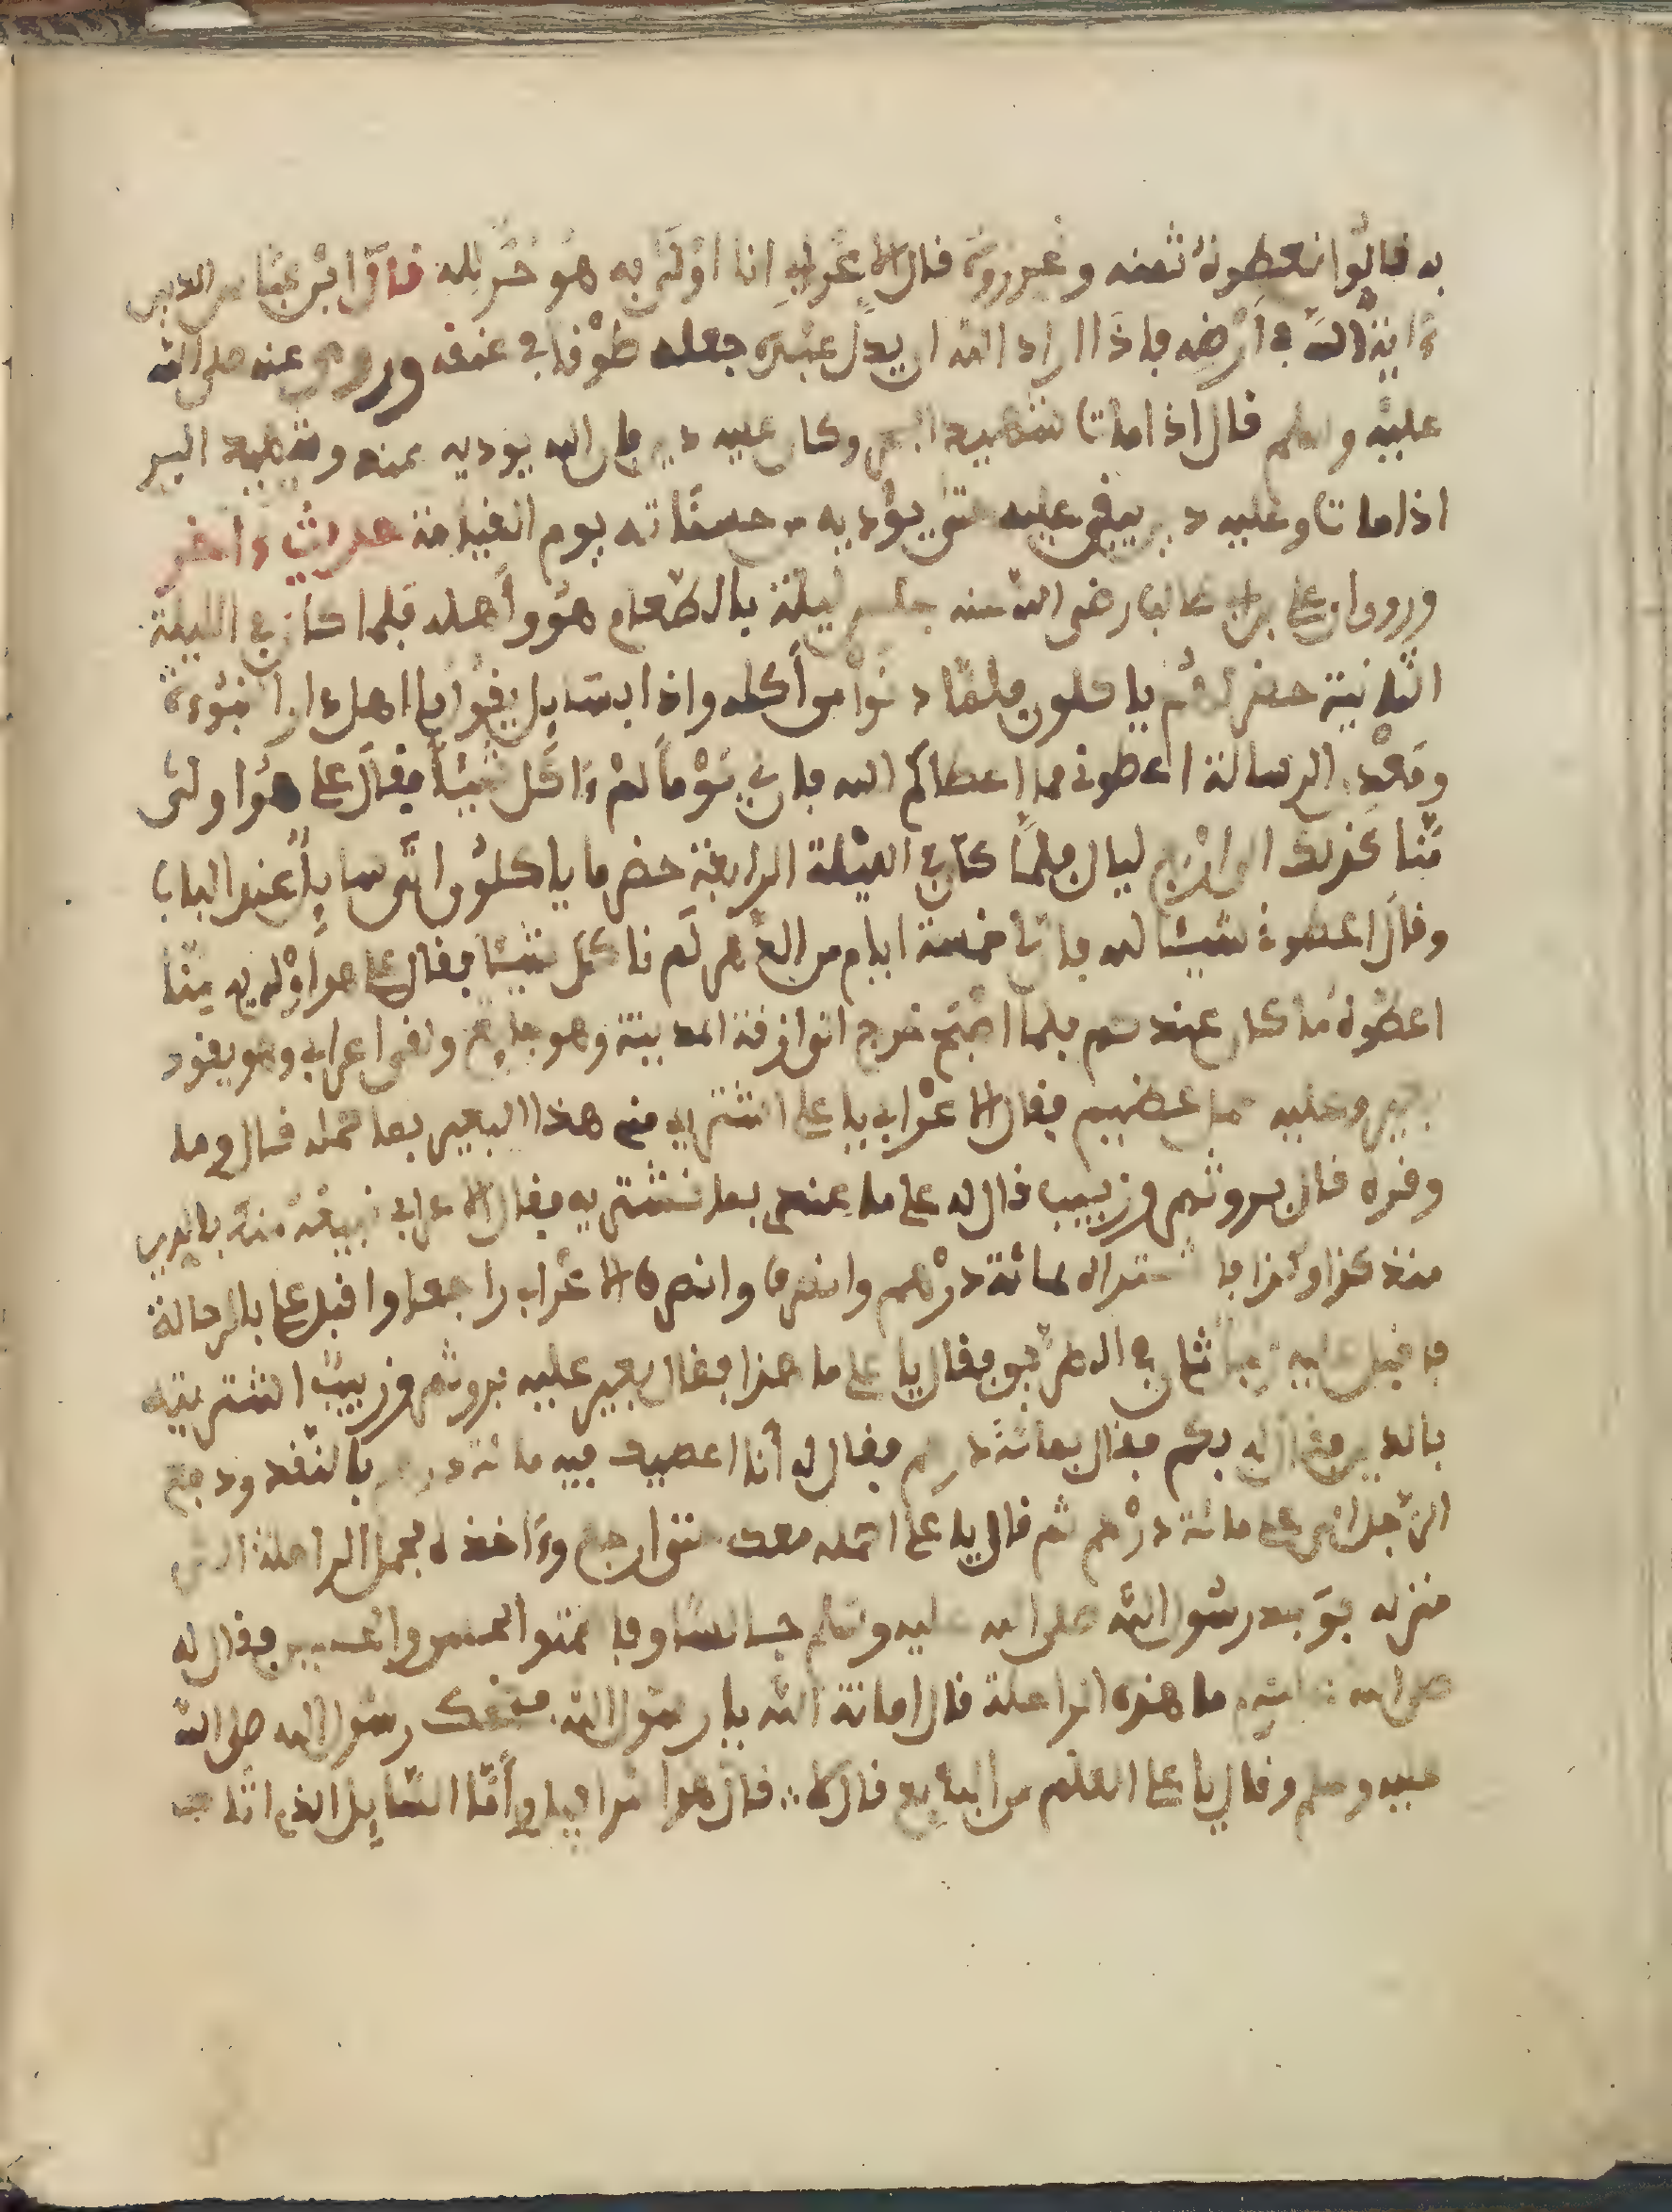 به قالوا نعطوه ثمنه و قال الاعرابي انا اولى به هو حر لله قال ابن عباس الدين
راية الله في أرضه فاذا اراد الله ان يذل عبده جعله طوقا في عنقه وروي عنه صلى الله
عليه وسلم قال اذا مات شهيد البحر وكان عليه دين فان الله يوديه عنه وشهيد البر
اذا مات وعليه دين يبقى عليه حتى يؤديه من حسناته يوم القيامة حديث ءاخر
وروو ان علي بن ابي طالب رضي الله عنه جلس ليلة بالطعام هو وأهله فلما كان في الليلة
الثانية حضر لهم ياكلون فلما دنوا من أكله واذا بسايل يقول يا اهل دار النبوءة
ومعدن الرسالة اعطوني مما اعطاكم الله فان لي يوما لم ءاكل شيئا فقال علي هو اولى
منا كذلك الى ليال فلما كان في الليلة الرابعة حضر ما ياكلون اتى سايل عند الباب
وقال اعطوني شيئا لله فانا خمسة ايام من الدهر لم ناكل شيئا فقال علي هو اولى به منا
اعطوه ما كان عندهم فلما اصبح خرج الى ازقة المدينة وهو جايع واذا اعرابي وهو يقود
بعير وعليه حمل عظيم فقال الاعرابي يا علي اشتري مني هذا البعير بما حمله قال وما
وقره قال بر وثمر وزبيب قال له علي ما عندي بما نشتريه فقال الاعرابي نبيعه منك بالدين
منذ كذا وكذا فاشتراه بمائة درهم وانصرف وانصرف الاعرابي راجعا واقبل علي بالرحالة
فاقبل عليه ثان في الطريق فقال يا علي ما هذا فقال بعير عليه بر وثمر وزبيب اشتريته
بالدين فقال له بكم فقال بمائة درهم فقال له أنا اعطيك فيه مائة درهم بالنقد ودفع
الرجل الى علي مائة درهم ثم قال يا علي احمله معك حتى ارجع وءاخذه فحمل الراحلة الى
منزله فوجد رسول الله صلى الله عليه وسلم جالسا و الحسن والحسين فقال له
صلى الله عليه وسلم ما هذه الراحلة قال امانة الله يا رسول الله فضحك رسول الله صلى الله
عليه وسلم وقال يا علي اتعلم من البايع قال لا قال هو اسرافيل وأما السايل الذي اتاك